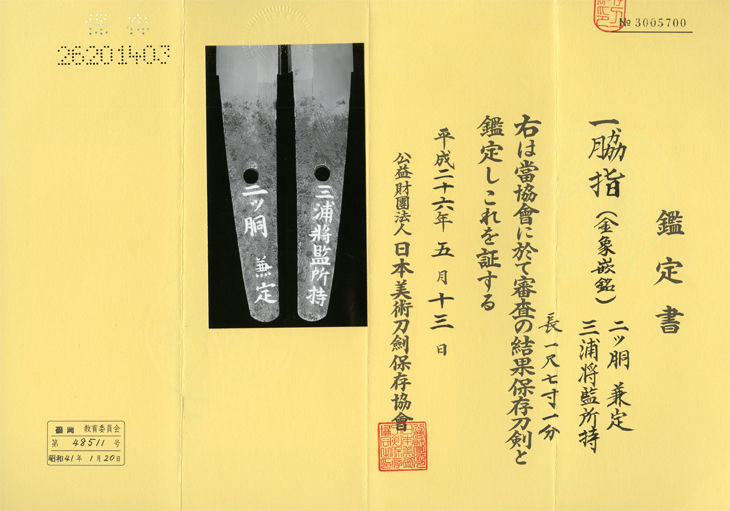 № 3005700
鑑定書
一脇指(金象嵌銘)二ッ胴 兼定
三浦将監所持
長一尺七寸一分
右は當協會に於て審査の結果保存刀剣と
鑑定しこれを証する
平成二十六年五月十三日
公益財團法人日本美術刀劍保存協會
三浦将監所持
二ッ胴 兼定
26201403
教育委員会
第 48511 号
昭和41年1月20日